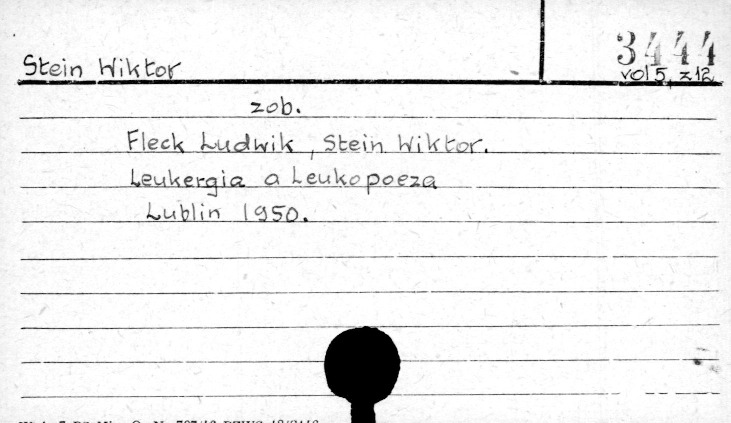 3444
Stein Wiktor
vol 5, z 12
zob.
Fleck Ludwik, Stein Wiktor.
Leukergia a Leukopoeza
Lublin 1950.